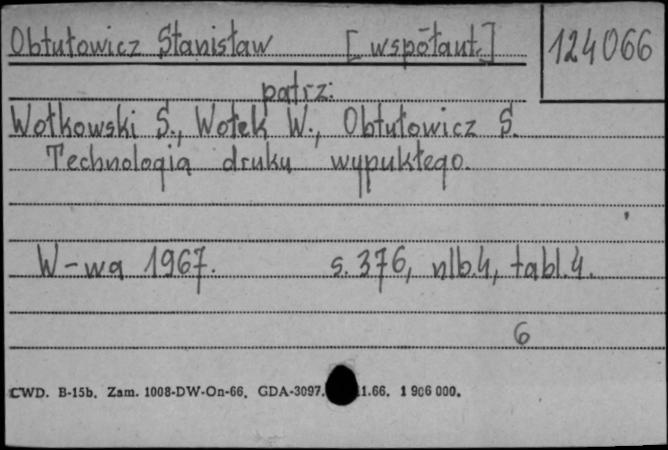 Obtułowicz Stanisław [współaut.] 124066
patrz:
Wołkowski S., Wołek W., Obtułowicz S.
Technologia druku wypukłego.
W-wa 1967. s. 376, nlb. 4, tabl. 4.
6
CWD. B-15b. Zam. 1008-DW-On-66. GDA-3097. 1.66. 1 906 000.